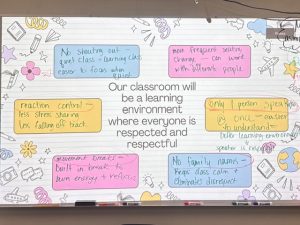 No shouting out
quiet class = learning class
easier to focus when
quiet
more frequent seating
change — can work
with different people
Our classroom will
be a learning
environment
where everyone is
respected and
respectful
reaction control —
less stress sharing
less falling off track
Only 1 person speaking
@ once — easier
to understand —
better learning environment
speaker is respected
movement breaks —
Built in break to
burn energy + refocus
No family names —
Keeps class calm +
eliminate disrespect